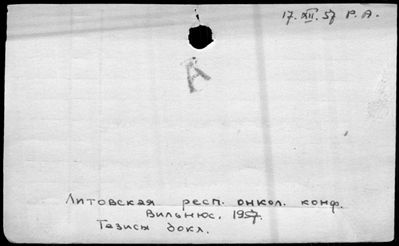 17.XII.57 Р.А.
А
Литовская респ. онкол. конф.
Вильнюс. 1957.
Тазисы докл.